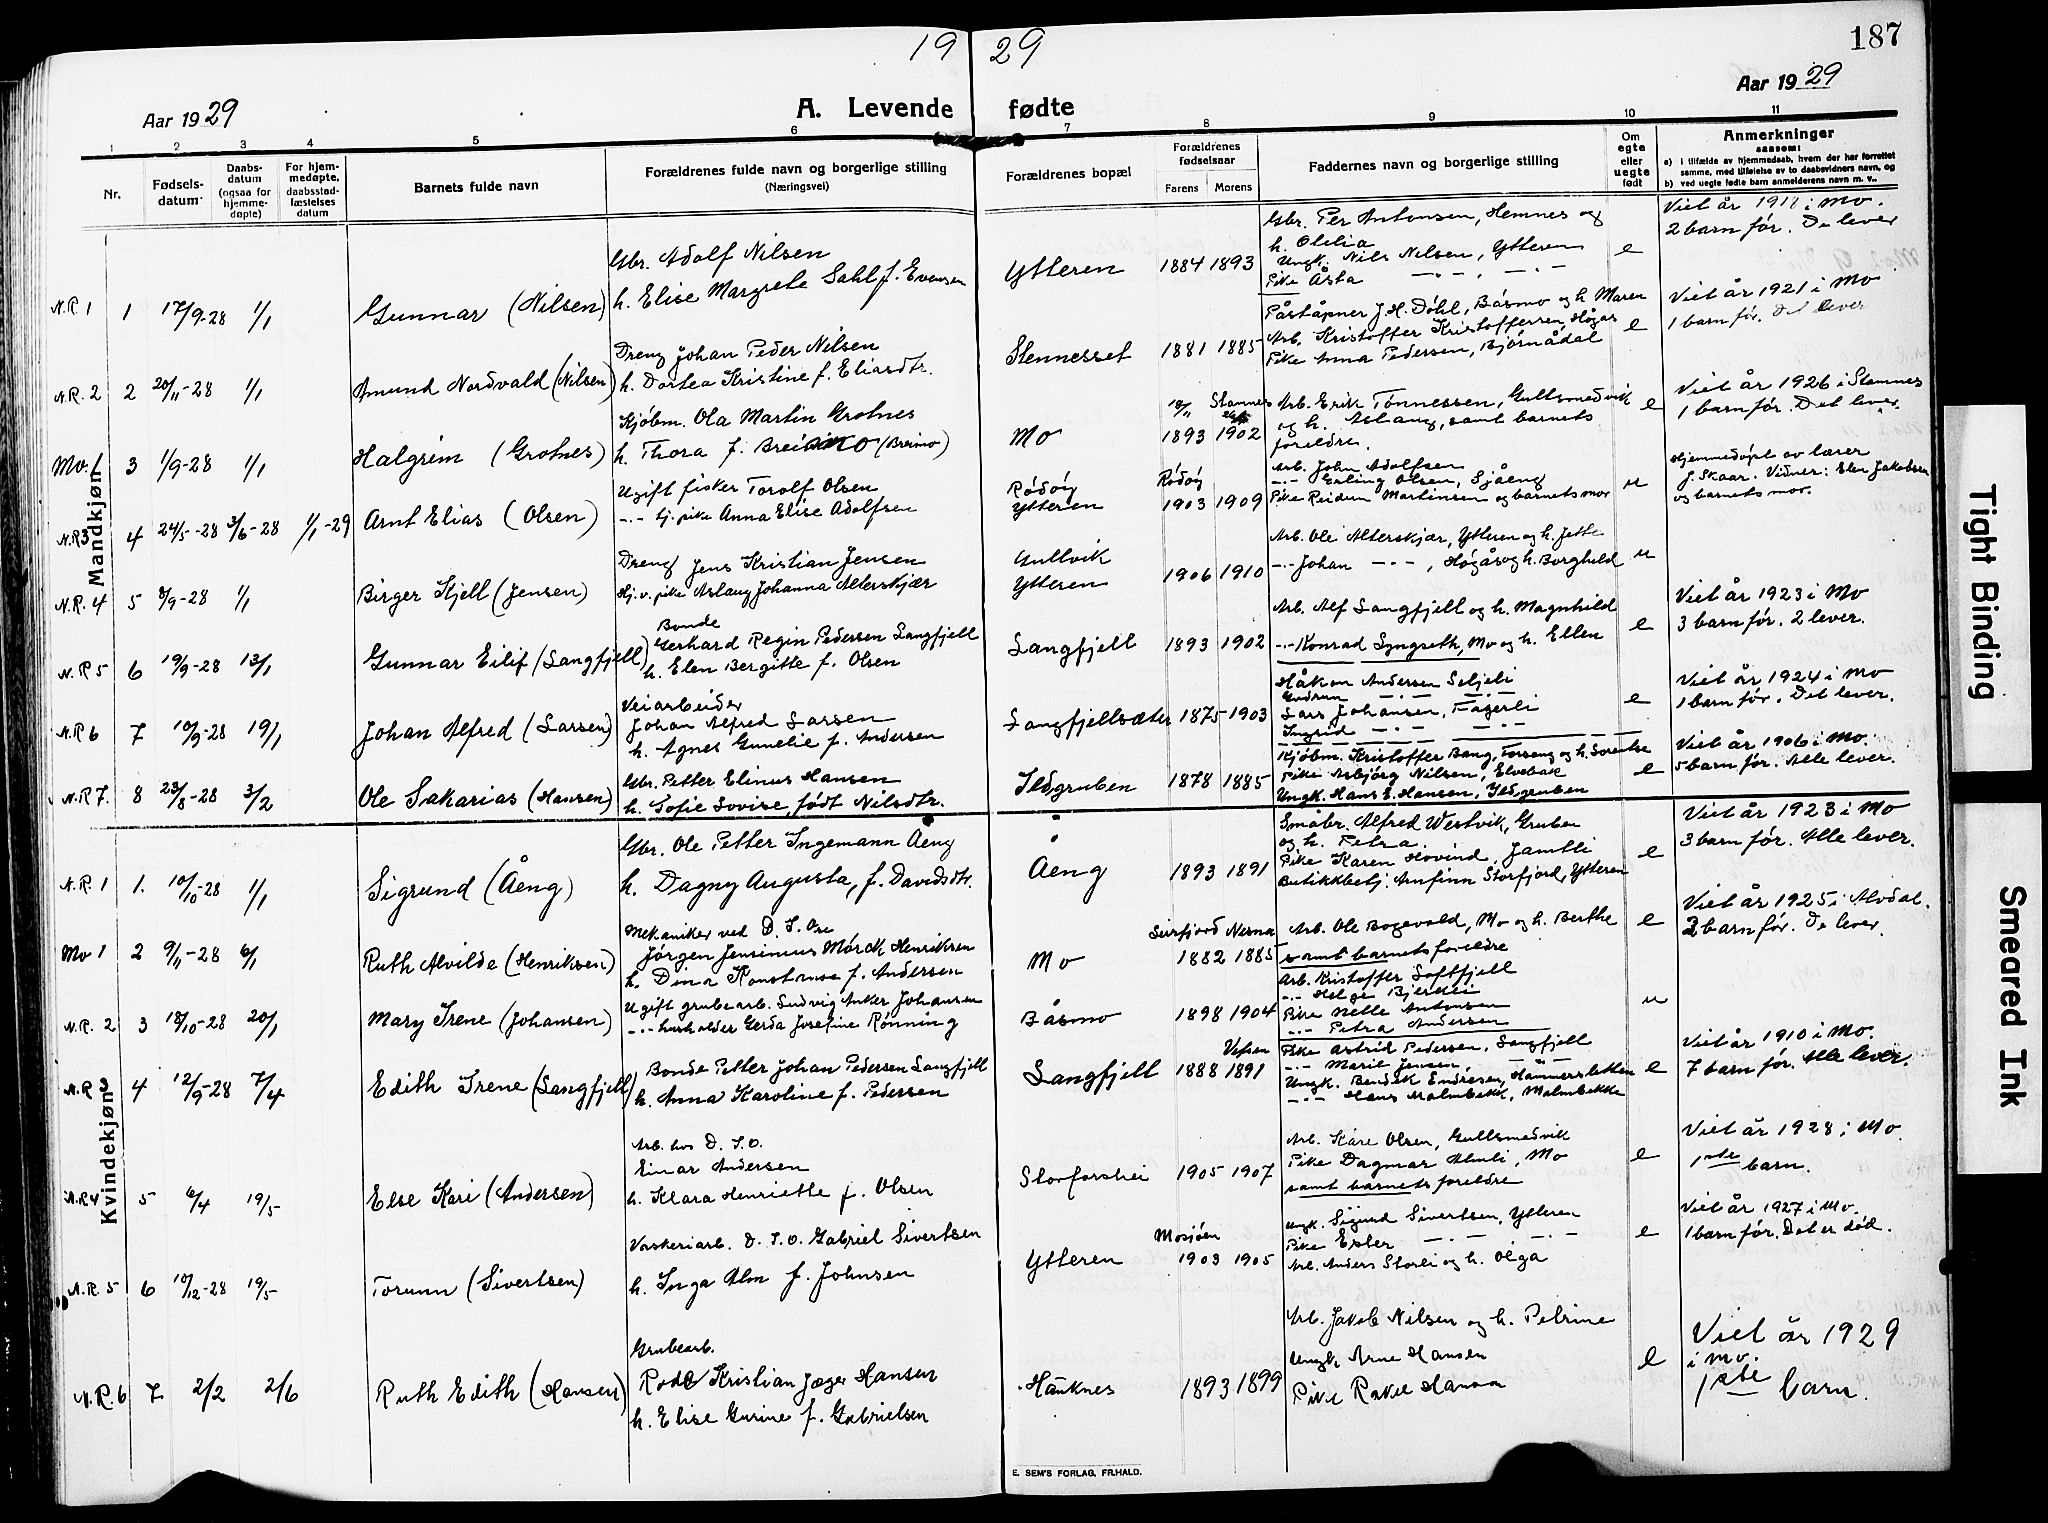 19 29
187
Aar 1929
A. Levende fødte
Aar 1929
1 2 3 4 5 6 7 8 9 10 11
Nr.
Fødsels-
datum
Daabs-
datum
(ogsaa for
hjemme-
døpte)
For hjem-
medøpte,
daabsstad-
fæstelses
datum
Barnets fulde navn
Forældrenes fulde navn og borgerlige stilling
(Næringsvei)
Forældrenes bopæl
Forældrenes
fødselsaar
Farens Morens
Faddernes navn og borgerlige stilling
Om
egte
eller
uegte
født
Anmerkninger
saasom:
a) i tilfælde av hjemmedaab, hvem der har forrettet
samme, med tilføielse av to daabsvidners navn, og
b) ved uegte fødte barn anmelderens navn m. v.
Mandkjøn
N.R. 1 1 17/9-28 1/1 Gunnar (Nilsen)
Gbr. Adolf Nilsen
h. Elise Margrete Dahl f. Evensen
Ytteren 1884 1893
Gbr. Per Antonsen, Hemnes og
h. Otelia
Ungk. Nils Nilsen, Ytteren
Pike Åsta
e
Viet år 1918 i Mo.
2 barn før. De lever
N.R. 2 2 20/11-28 1/1 Amund Nordvald (Nilsen)
Dreng Johan Peder Nilsen
h. Dortea Kristine f. Eliasdtr.
Stennesset 1881 1885
J. H. Døhl, Båsmo og h. Maren
Arb. Kristoffer Kristoffersen, Høgås
Pike Anna Pedersen, Bjørnådal
e
Viet år 1921 i Mo
1 barn før. Det lever
Mo. 1 3 1/9-28 1/1 Halgrim (Grotnes)
Kjøbm. Ola Martin Grotnes
h. Thora f. Breimo (Breimo)
Mo
Stamnes
1893 1902
Arb. Erik Tønnessen, Gullsmedvik
og h. Aslaug, samt barnets
foreldre.
e
Viet år 1926 i Stamnes
1 barn før. Det lever.
N.R. 3 4 24/5-28 3/6-28 1/1-29 Arnt Elias (Olsen)
Ugift fisker Torolf Olsen
-"- tj. pike Anna Elise Adolfsen
Rødøy
Ytteren
Rødøy
1903 1909
Arb. John Adolfsen
-"- Erling Olsen, Sjåeng
Pike Reidun Martinsen og barnets mor
u
Hjemmedøpt av lærer
J. Skaar. Vidner: Elen Jakobsen
og barnets mor.
N.R. 4 5 8/9-28 1/1 Birger Kjell (Jensen)
Dreng Jens Kristian Jensen
Hj. v. pike Aslaug Johanna Alterskjær
Gullvik
Ytteren
1906 1910
Arb. Ole Alterskjær, Ytteren og h. Jette
-"- Johan -"-, Høgås og h. Borghild
u
N.R. 5 6 19/9-28 13/1 Gunnar Eilif (Langfjell)
Bonde
Gerhard Regin Pedersen Langfjell
h. Elen Bergitte f. Olsen
Langfjell 1893 1902
Arb. Alf Langfjell og h. Magnhild
-"- Konrad Lyngseth, Mo og h. Ellen
e
Viet år 1923 i Mo
3 barn før. 2 lever.
N.R. 6 7 10/9-28 19/1 Johan Alfred (Larsen)
Veiarbeider
Johan Alfred Larsen
h. Agnes Gunelie f. Andersen
Langfjellsæter 1875 1903
Håkon Andersen Seljeli
Gudrun -"- -"-
Lars Johansen, Fagerli
Ingrid -"- -"-
e
Viet år 1924 i Mo
1 barn før. Det lever.
N.R. 7. 8 23/8-28 3/2 Ole Sakarias (Hansen)
Gbr. Petter Elinus Hansen
h. Sofie Lovise, født Nilsdtr.
Ildgruben 1878 1885
Kjøbm. Kristoffer Bang, Torseng og h. Lorentse
Pike Asbjørg Nilsen, Elvebak
Ungk. Hans E. Hansen, Ildgruben
e
Viet år 1906 i Mo.
5 barn før. Alle lever.
Kvindekjøn
N.R. 1 1. 10/10-28 1/1 Sigrund (Åeng)
Gbr. Ole Petter Ingemann Åeng
h. Dagny Augusta, f. Davidsdtr.
Åeng 1893 1891
Småbr. Alfred Westvik, Gruben
og h. Petra.
Pike Karen Hovind, Jamtli
Butikkbetj. Arnfinn Storfjord, Ytteren
e
Viet år 1923 i Mo
3 barn før. Alle lever.
Mo 1 2 9/11-28 6/1 Ruth Alvilde (Henriksen)
Mekaniker ved D. I. Ore
Jørgen Jensinius Mørck Henriksen
h. Dina Konstanse f. Andersen
Mo
Nesna
1882 1885
Arb. Ole Bogevold, Mo og h. Berthe
samt barnets foreldre
e
Viet år 1925 i Alvdal.
2 barn før. De lever.
N.R. 2 3 18/10-28 20/1 Mary Irene (Johansen)
Ugift grubearb. Ludvig Anker Johansen
-"- husholder Gerda Josefine Rønning
Båsmo 1898 1904
Arb. Kristoffer Loftfjell
-"- Helge Bjerkli
Pike Nelle Antonsen
-"- Petra Andersen
u
N.R. 3 4 12/9-28 7/4 Edith Irene (Langfjell)
Bonde Petter Johan Pedersen Langfjell
h. Anna Karoline f. Pedersen
Langfjell
Vefsen
1888 1891
Pike Astrid Pedersen, Langfjell
-"- Marit Jensen, -"-
Ungk. Bendik Endresen, Hammersletten
-"- Hans Malmbekk, Malmbekke
e
Viet år 1910 i Mo.
7 barn før. Alle lever.
N.R. 4 5 6/4 19/5 Else Kari (Andersen)
Arb. hos D. I. O.
Einar Andersen
h. Klara Henriette f. Olsen
Storforshei 1905 1907
Arb. Kåre Olsen, Gullsmedvik
Pike Dagmar Almli, Mo
samt barnets foreldre
e
Viet år 1928 i Mo.
1ste barn.
N.R. 5 6 10/12-28 19/5 Torunn (Sivertsen)
Vaskeriarb. D. I. O. Gabriel Sivertsen
h. Inga Alm f. Johnsen
Ytteren
Mosjøen
1903 1905
Ungk. Sigurd Sivertsen, Ytteren
Pike Ester -"- -"-
Arb. Anders Storli og h. Olga
e
Viet år 1927 i Mo.
1 barn før. Det er død.
N.R. 6 7 2/2 2/6 Ruth Edith (Hansen)
Grubearb.
Rode Kristian Jæger Hansen
h. Elise Gurine f. Gabrielsen
Hauknes 1893 1899
Arb. Jakob Nilsen og h. Petrine
Ungk. Arne Hansen
Pike Rakel Hansen
e
Viet år 1929
i Mo.
1ste barn.
E. SEM'S FORLAG, FR.HALD.
Tight Binding
Smeared Ink